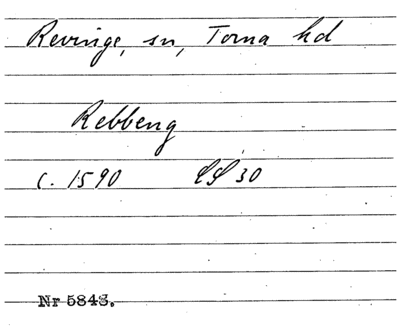 Revinge, sn, Torna hd
Rebbeng
c. 1590 LL 30
Nr 5843.